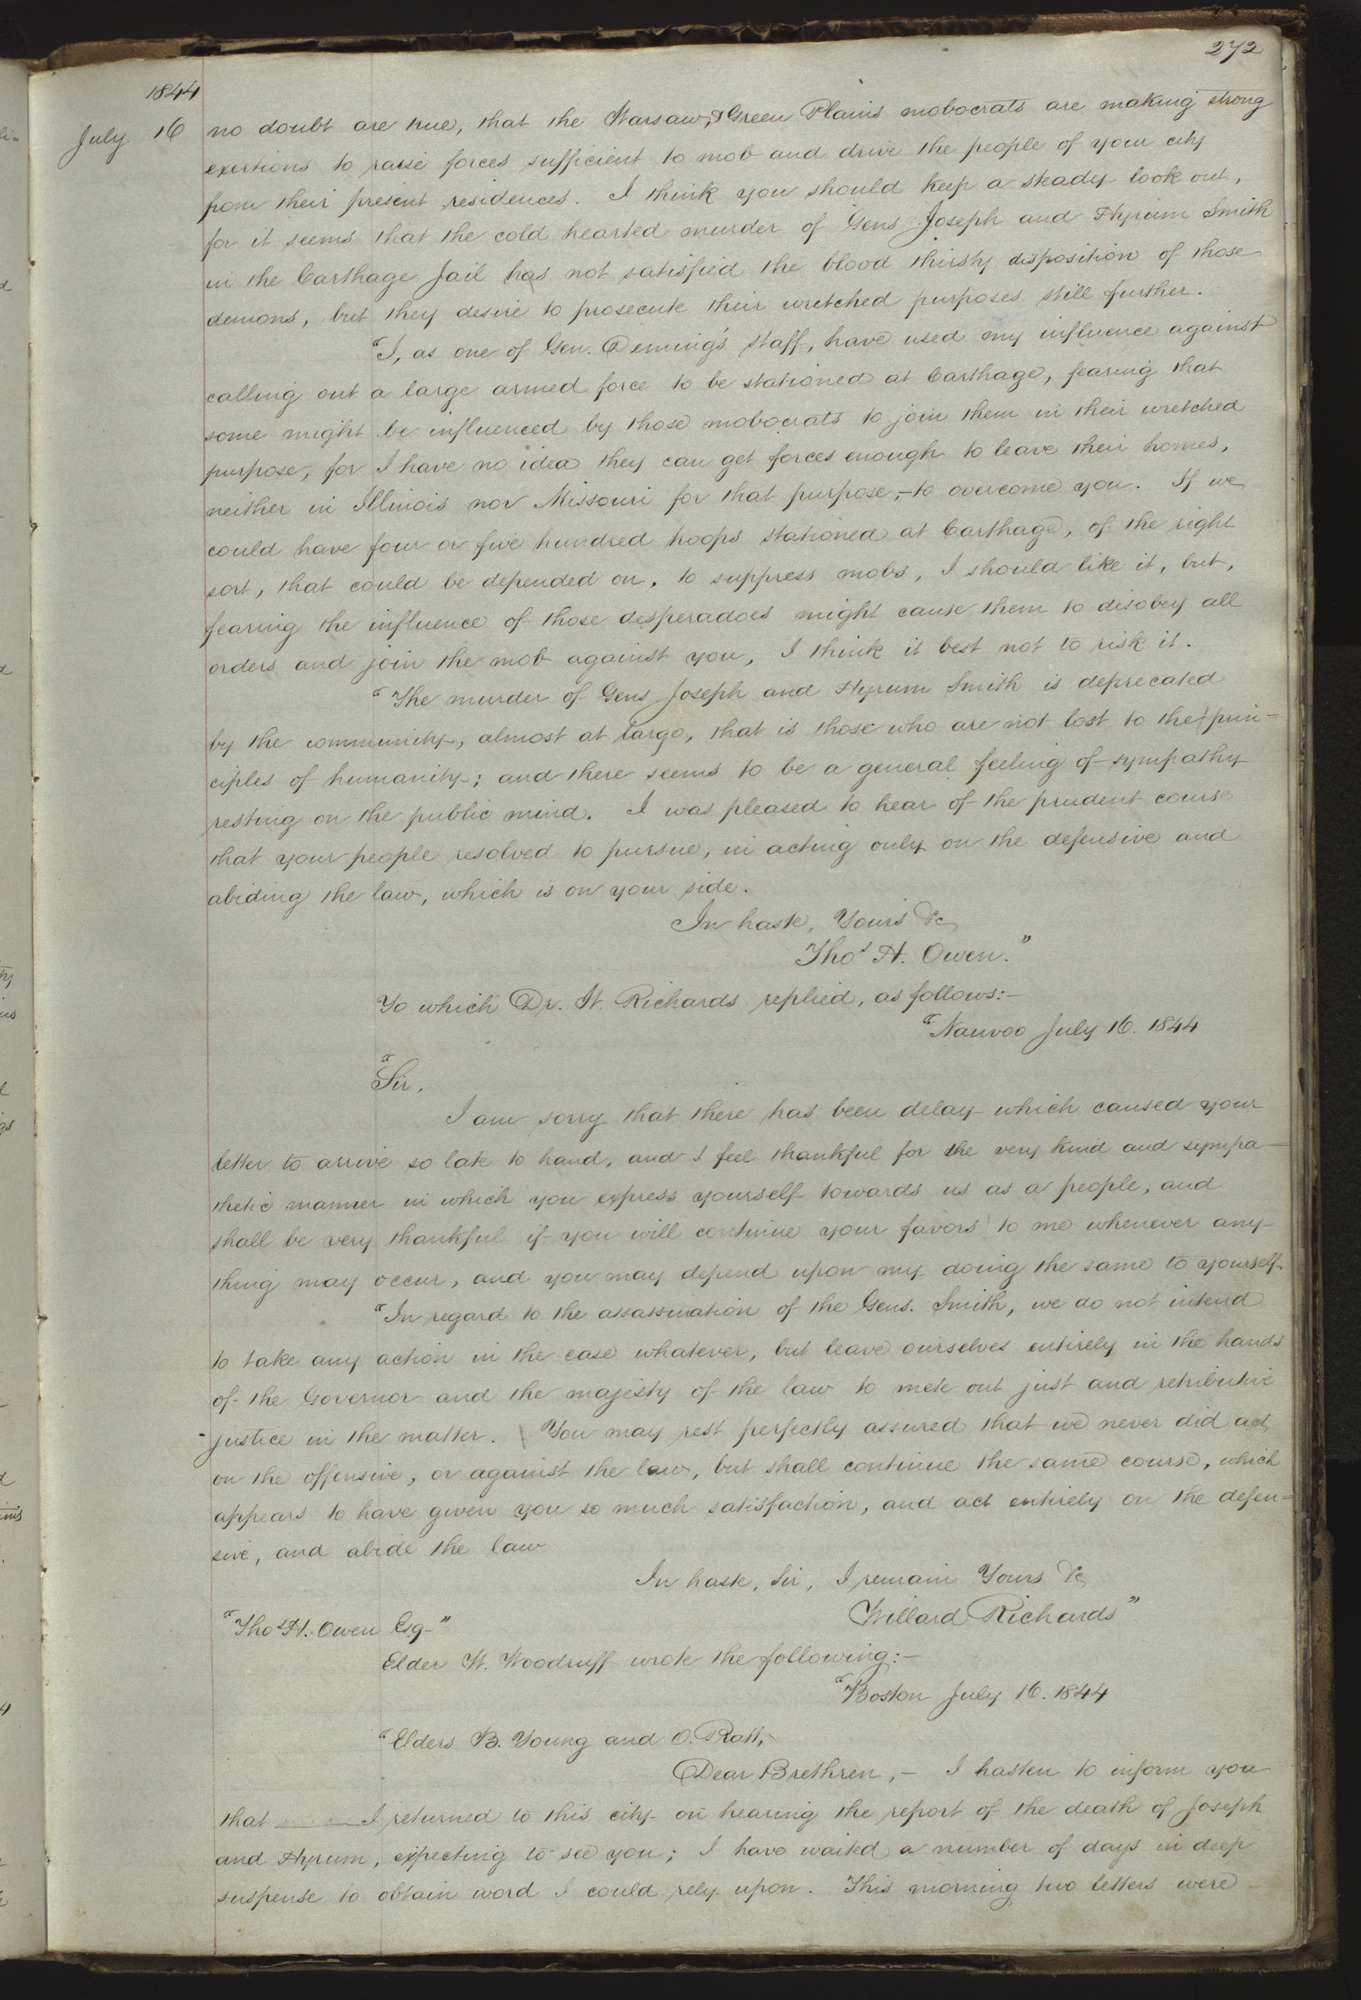 272
1844
July 16
no doubt are true, that the Warsaw, & Green Plains mobocrats are making strong
exertions to raise forces sufficient to mob and drive the people of your city
from their present residences. I think you should keep a steady look out,
for it seems that the cold hearted murder of Gens Joseph and Hyrum Smith
in the Carthage Jail has not satisfied the blood thirsty disposition of those
demons, but they desire to prosecute their wretched purposes still further.
"I, as one of Gen. Deming's staff, have used my influence against
calling out a large armed force to be stationed at Carthage, fearing that
some might be influenced by those mobocrats to join them in their wretched
purpose, for I have no idea they can get forces enough to leave their homes,
neither in Illinois nor Missouri for that purpose,—to overcome you. If we
could have four or five hundred troops stationed at Carthage, of the right
sort, that could be depended on, to suppress mobs, I should like it, but,
fearing the influence of those desperadoes might cause them to disobey all
orders and join the mob against you, I think it best not to risk it.
"The murder of Gens Joseph and Hyrum Smith is deprecated
by the community, almost at large, that is those who are not lost to the prin-
ciples of humanity; and there seems to be a general feeling of sympathy
resting on the public mind. I was pleased to hear of the prudent course
that your people resolved to pursue, in acting only on the defensive and
abiding the law, which is on your side.
In haste, Yours &c
Thos H. Owen."
To which Dr. W. Richards replied, as follows:—
"Nauvoo July 16. 1844
"Sir,
I am sorry that there has been delay which caused your
letter to arrive so late to hand, and I feel thankful for the very kind and sympa-
thetic manner in which you express yourself towards us as a people, and
shall be very thankful if you will continue your favors to me whenever any-
thing may occur, and you may depend upon my doing the same to yourself.
"In regard to the assassination of the Gens. Smith, we do not intend
to take any action in the case whatever, but leave ourselves entirely in the hands
of the Governor and the majesty of the law to mete out just and retributive
justice in the matter. You may rest perfectly assured that we never did act
on the offensive, or against the law, but shall continue the same course, which
appears to have given you so much satisfaction, and act entirely on the defen-
sive, and abide the law
In haste, Sir, I remain Yours &c
Willard Richards"
"Thos H. Owen Esq—"
Elder W. Woodruff wrote the following:—
"Boston July 16. 1844
"Elders B. Young and O. Pratt,
Dear Brethren,— I hasten to inform you
that I returned to this city on hearing the report of the death of Joseph
and Hyrum, expecting to see you; I have waited a number of days in deep
suspense to obtain word I could rely upon. This morning two letters were